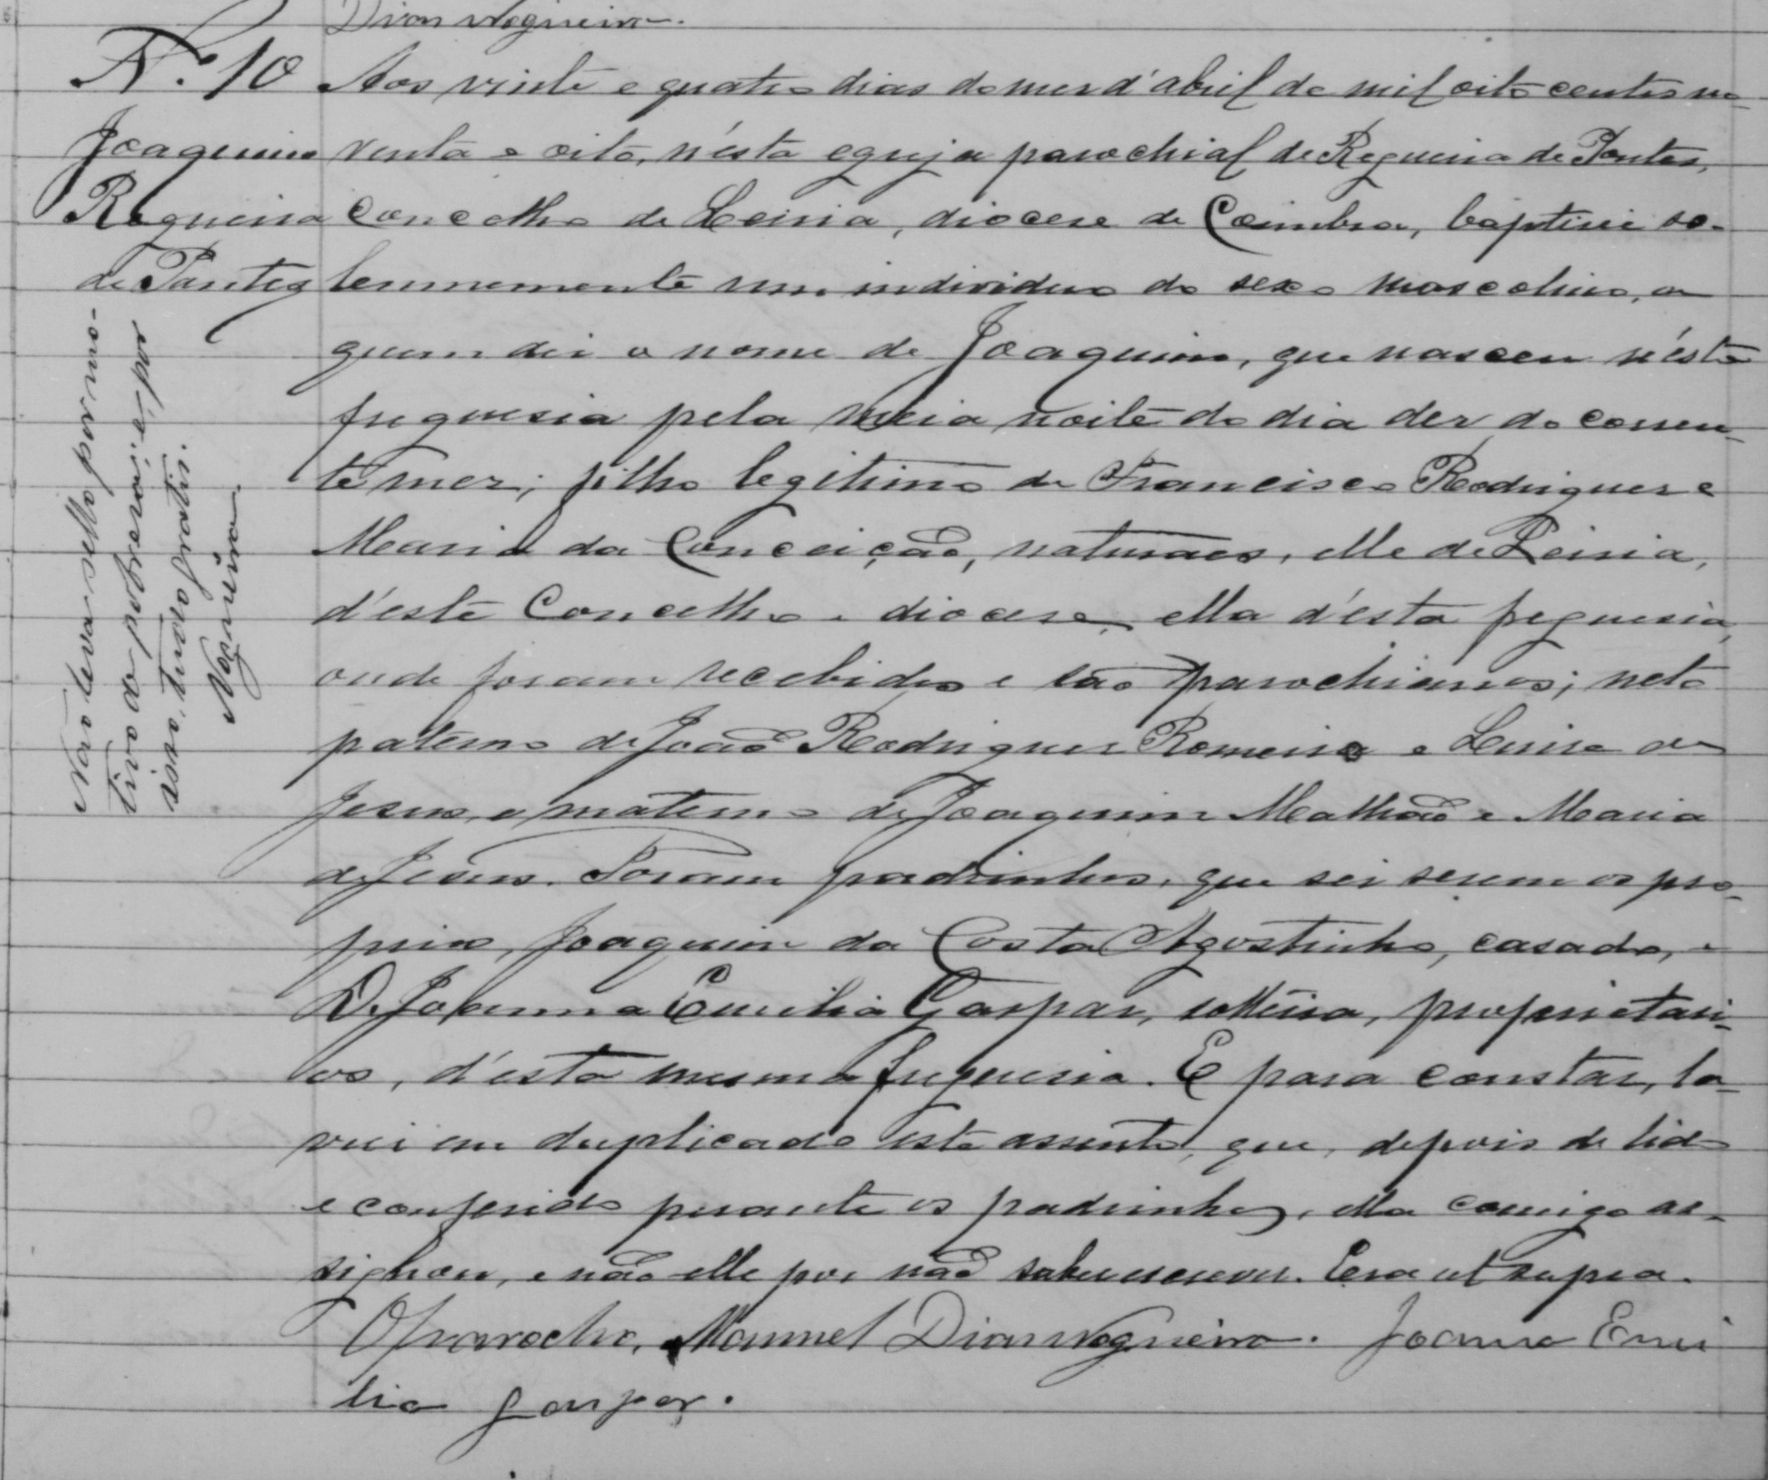 Dias Nogueira.
N.º 10
Joaquim
Regueira
de Pontes
Não leva sello por mo-
tivo de pobreza, e, por
isso, tudo gratis.
Nogueira.
Aos vinte e quatro dias do mez d'abril de mil oito centos no-
venta e oito, n'ésta egreja parochial de Regueira de Pontes,
Concelho de Leiria, diocese de Coimbra, baptisei so-
lemnemente um individuo do sexo mascolino, a
quem dei o nome de Joaquim, que nasceu n'ésta
freguesia pela meia noite do dia dez do corren-
te mez; filho legitimo de Francisco Rodrigues e
Maria da Conceição, naturaes, elle de Leiria,
d'éste Concelho e diocese, ella d'ésta freguesia,
onde foram recebidos e são parochianos; neto
paterno de João Rodrigues Romeiro e Luisa de
Jesus, e materno de Joaquim Malhão e Maria
de Jesus. Foram padrinhos, que sei serem os pro-
prios, Joaquim da Costa Agostinho, casado, e
D. Joanna Emilia Gaspar, solteira, proprietari-
os, d'ésta mesma freguesia. E para constar, la-
vrei em duplicado este assento, que, depois de lido
e conferido perante os padrinhos, ella comigo as-
signou, e não elle por não saber escrever. Era ut supra.
O parocho, Manuel Dias Nogueira. Joanna Emi
lia Gaspar.